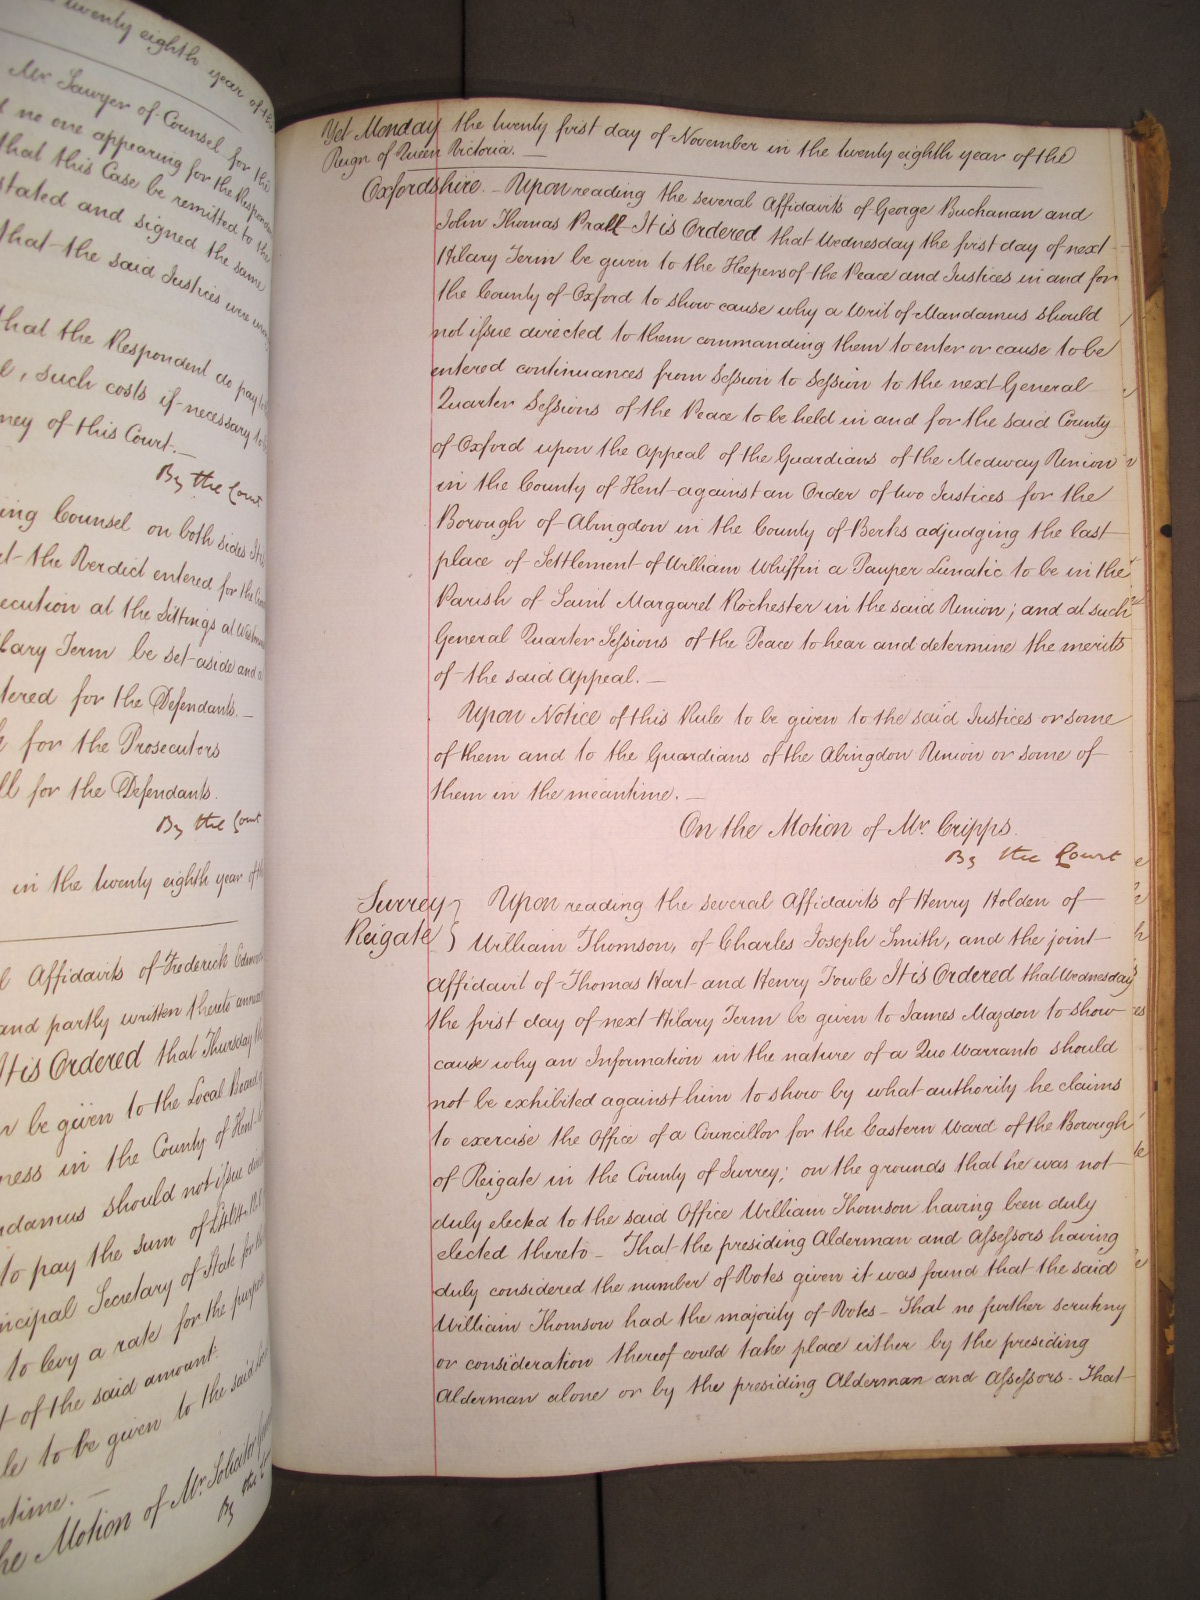 twenty eighth year of the
Mr Sawyer of Counsel for the
no one appearing for the Respondent
that this Case be remitted to the
stated and signed the same
that the said Justices were
that the Respondent do pay
, such costs if necessary to
ney of this Court. —
By the Court
ing Counsel on both sides It is
the Verdict entered for the
ecution at the Sittings at
ilary Term be set aside and
tered for the Defendants. —
for the Prosecutors
ll for the Defendants.
By the Court
in the twenty eighth year of the
Affidavits of Frederick
and partly written thereto
It is Ordered that Thursday
be given to the Local Board
ness in the County of Kent
ndamus should not issue
to pay the sum of
ncipal Secretary of State for
to levy a rate for the purpose
of the said amount.
le to be given to the said
ntime. —
he Motion of Mr. Solicitor
By the
Yet Monday the twenty first day of November in the twenty eighth year of the
Reign of Queen Victoria. —
Oxfordshire. – Upon reading the several Affidavits of George Buchanan and
John Thomas Prall It is Ordered that Wednesday the first day of next
Hilary Term be given to the Keepers of the Peace and Justices in and for
the County of Oxford to show cause why a Writ of Mandamus should
not issue directed to them commanding them to enter or cause to be
entered continuances from Session to Session to the next General
Quarter Sessions of the Peace to be held in and for the said County
of Oxford upon the Appeal of the Guardians of the Medway Union
in the County of Kent against an Order of two Justices for the
Borough of Abingdon in the County of Berks adjudging the last
place of Settlement of William Whiffin a Pauper Lunatic to be in the
Parish of Saint Margaret Rochester in the said Union; and at such
General Quarter Sessions of the Peace to hear and determine the merits
of the said Appeal. —
Upon Notice of this Rule to be given to the said Justices or some
of them and to the Guardians of the Abingdon Union or some of
them in the meantime. —
On the Motion of Mr. Cripps.
By the Court
Surrey } Upon reading the several Affidavits of Henry Holden of
Reigate } William Thomson, of Charles Joseph Smith, and the joint
Affidavit of Thomas Hart and Henry Fowle It is Ordered that Wednesday
the first day of next Hilary Term be given to James Mazdon to show
cause why an Information in the nature of a Quo Warranto should
not be exhibited against him to show by what authority he claims
to exercise the Office of a Councillor for the Eastern Ward of the Borough
of Reigate in the County of Surrey; on the grounds that he was not
duly elected to the said Office William Thomson having been duly
elected thereto – That the presiding Alderman and Assessors having
duly considered the number of Votes given it was found that the said
William Thomson had the majority of Votes – That no further scrutiny
or consideration thereof could take place either by the presiding
Alderman alone or by the presiding Alderman and Assessors – That